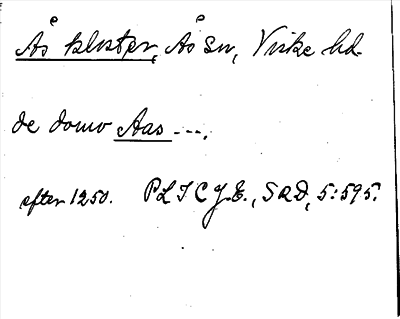 Ås kloster, Ås sn, Viske hd.
de domo Aas ---.
efter 1250. P L I C y. E., S R D, 5:595.